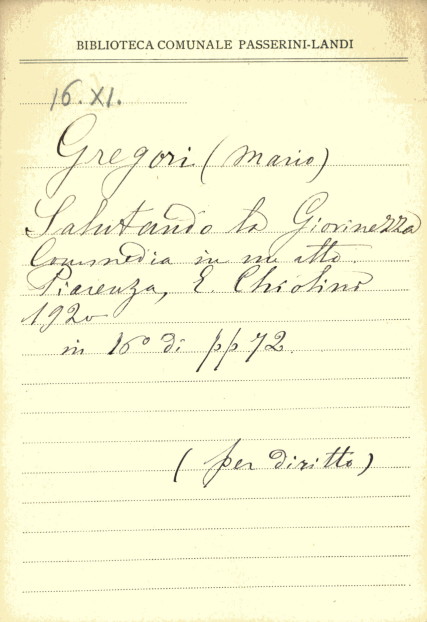 BIBLIOTECA COMUNALE PASSERINI-LANDI
16. XI.
Gregori (Mario)
Salutando la Giovinezza
Commedia in un atto.
Piacenza, E. Chiolini
1920
in 16° di pp 72.
(per diritto)